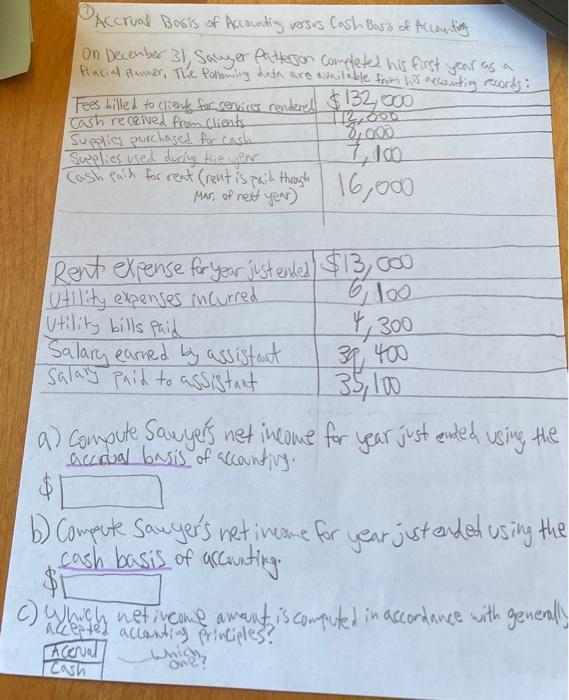 ① Accrual Basis of Accounting versus Cash Basis of Accounting
On December 31, Sawyer Patterson completed his first year as a
Finacial Planner, The following data are available from his accounting records:
Fees billed to clients for services rendered $132,000
Cash received from clients 112,000
Supplies purchased for cash 8,000
Supplies used during the year 7,100
Cash paid for rent (rent is paid through 16,000
Mar. of next year)
Rent expense for year just ended $13,000
Utility expenses incurred 6,100
Utility bills paid 4,300
Salary earned by assistant 39,400
Salary paid to assistant 35,100
a) Compute Sawyer's net income for year just ended using the
accrual basis of accounting.
$
b) Compute Sawyer's net income for year just ended using the
cash basis of accounting.
$
c) Which net income amount is computed in accordance with generally
accepted accounting principles?
Accrual which
Cash one?